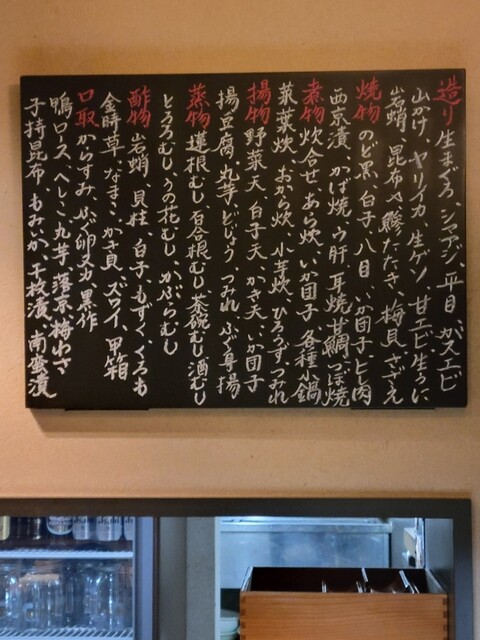 造り 生まぐろ、シマアジ、平目、ガスエビ
山かけ、ヤリイカ、生ゲソ、甘エビ、生うに
岩蛸、昆布〆、鯵たたき、梅貝、さざえ
焼物 のど黒、白子、八目、いか団子、とし肉
西京漬、かば焼、ウ肝、耳焼、甘鯛つぼ焼
煮物 炊合せ、あら炊、いか団子、各種小鍋
菜葉炊、おから炊、小芋炊、ひろうず、つみれ
揚物 野菜天、白子天、かき天、いか団子
揚豆腐、丸芋、どじょう、つみれ、ふぐ唐揚
蒸物 蓮根むし、百合根むし、茶碗むし、酒むし
とろろむし、うの花むし、かぶらむし
酢物 岩蛸、貝柱、白子、もずく、くろも
金時草、なまこ、かき貝、ズワイ、甲箱
口取 からすみ、ふぐ卵ヌカ、黒作
鴨ロース、へしこ、丸芋、落京、梅わさ
子持昆布、もみいか、千枚漬、南蛮漬